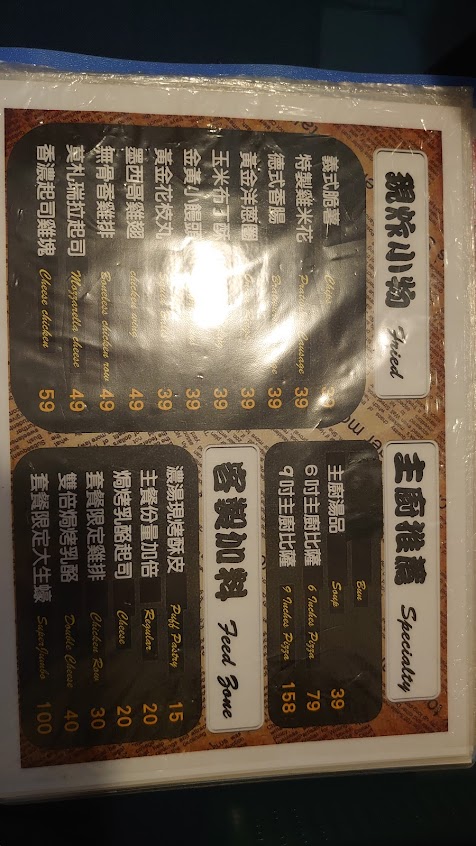 現炸小物 Fried
義式脆薯 Chips 39
特製雞米花 39
德式香腸 sausage 39
黃金洋蔥圈 39
玉米布丁 39
金黃小饅頭 39
黃金花枝丸 39
墨西哥雞翅 chicken wing 39
無骨香雞排 Boneless chicken row 49
莫札瑞拉起司 Morzarella cheese 49
香濃起司雞塊 Cheese chicken 59
主廚推薦 Specialty
主廚湯品 Soup 39
6吋主廚比薩 6 Inches Pizza 79
9吋主廚比薩 9 Inches Pizza 158
客製加料 Feed Zone
濃湯現烤酥皮 Puff Pastry 15
主餐份量加倍 Regular 20
焗烤乳酪起司 Cheese 20
套餐限定雞排 Chicken Row 30
雙倍焗烤乳酪 Double Cheese 40
套餐限定大生蠔 Super Jumbo 100